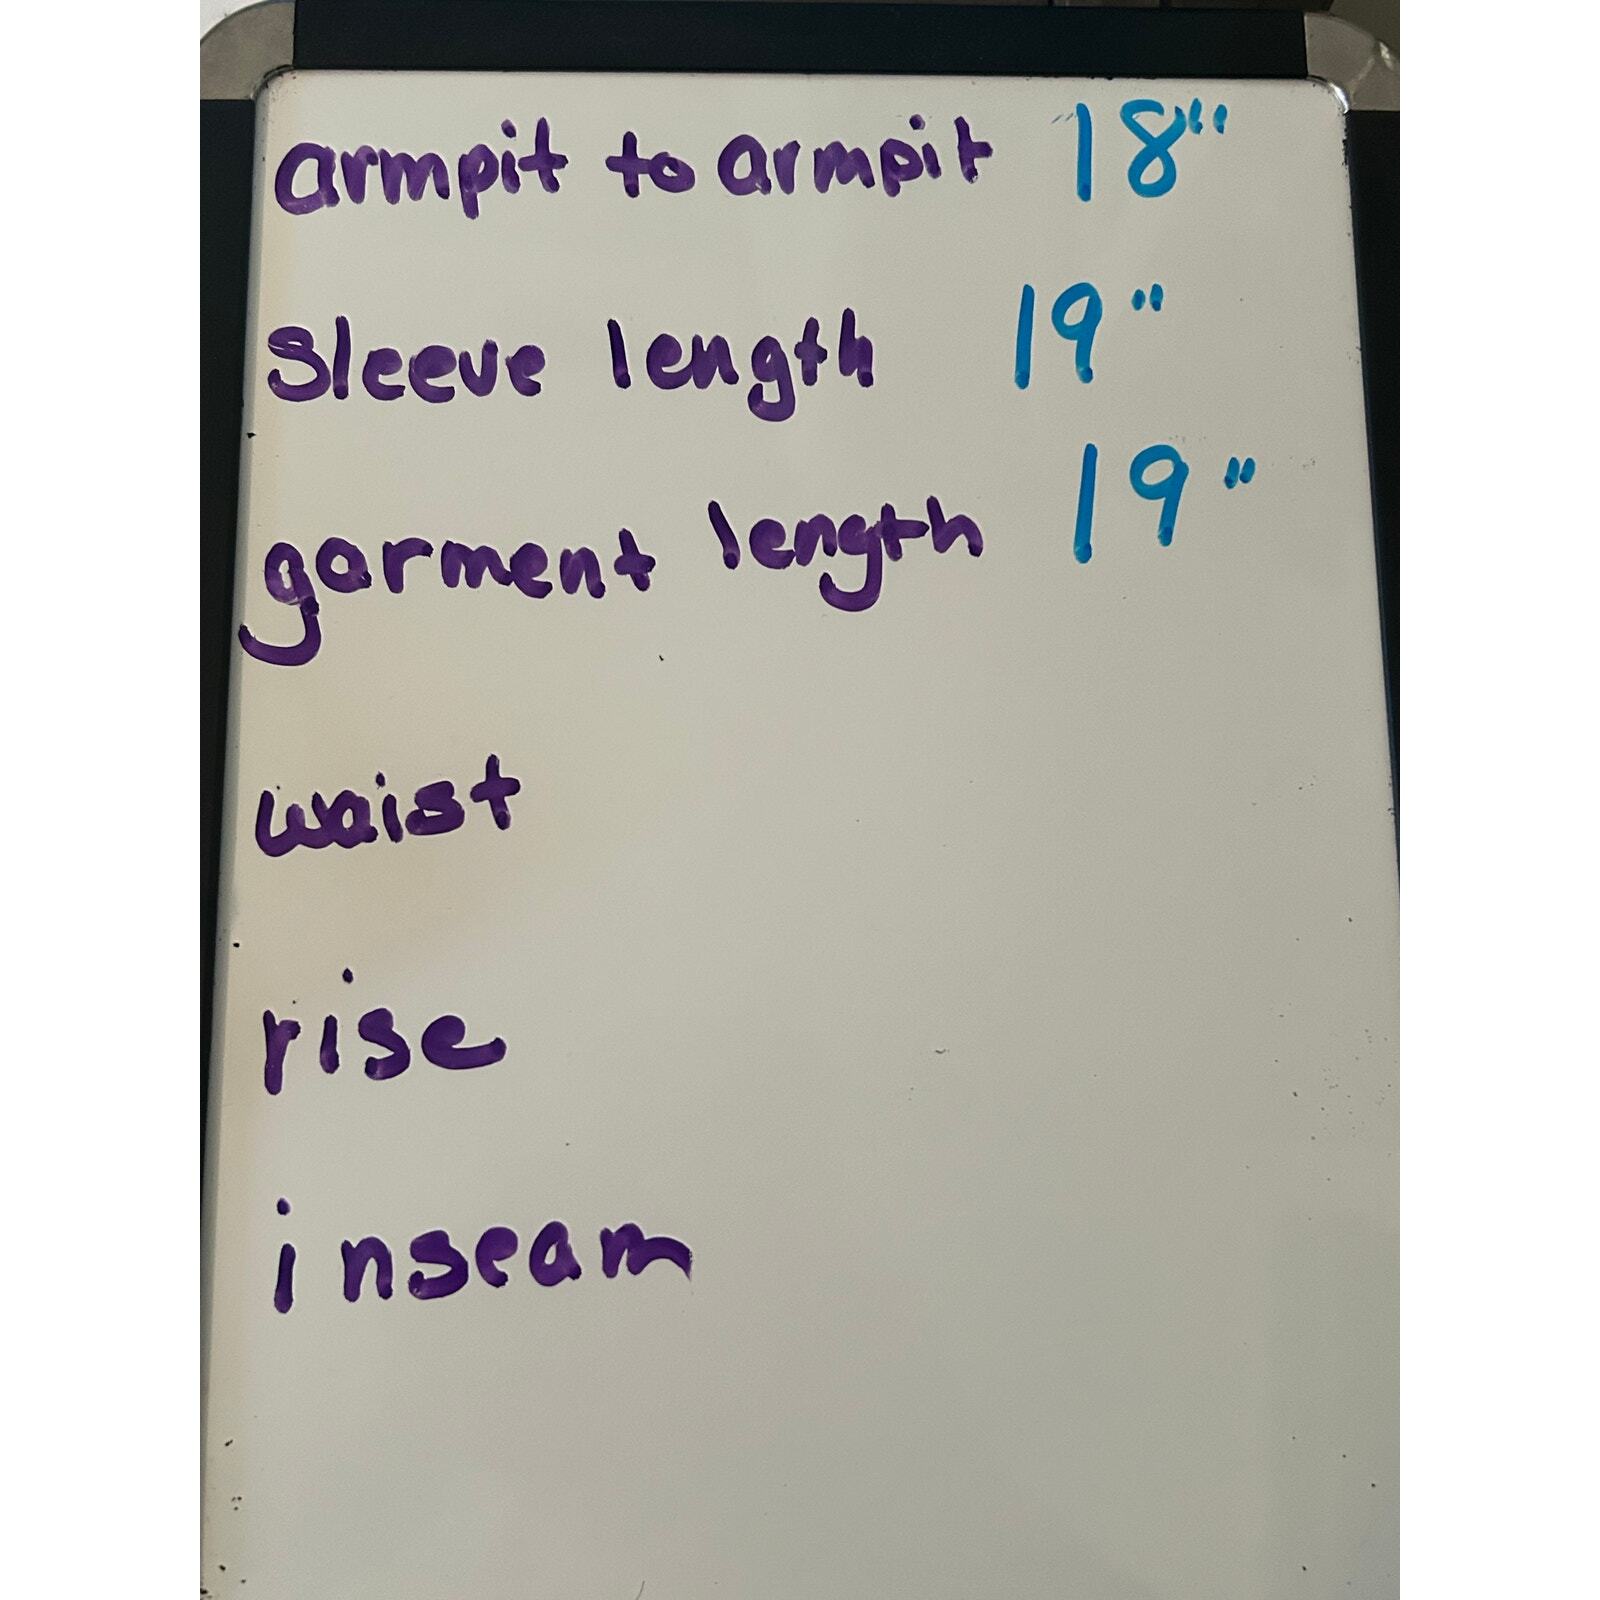 armpit to armpit 18"
Sleeve length 19"
garment length 19"
waist
rise
inseam